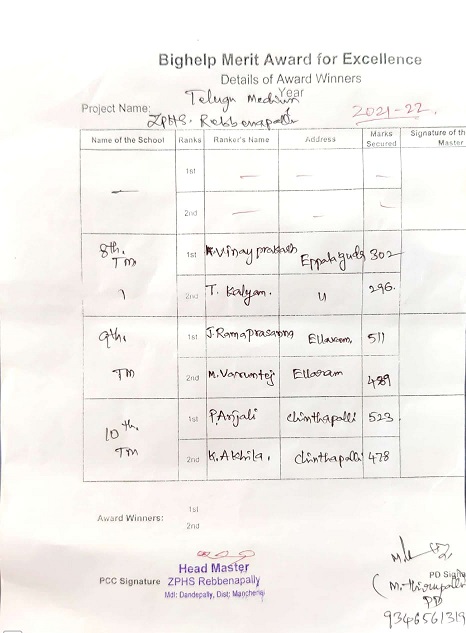 Bighelp Merit Award for Excellence
Details of Award Winners
Project Name: Telugu Medium Year
ZPHS. Rebbenapalli 2021-22.
Name of the School Ranks Ranker's Name Address Marks Secured Signature of th Master
1st — — —
2nd — — —
8th. TM 1st K.Vinay prakash Eppalaguda 302
2nd T. Kalyam. 296.
9th. TM 1st J.Ramaprasanna 511
2nd M.Varuntej Ellaram 489
10th. TM 1st P.Anjali chinthapalli 523
2nd K.Akhila. chinthapalli 478
Award Winners: 1st
2nd
PCC Signature
Head Master
ZPHS Rebbenapally
Mdl: Dandepally, Dist; Mancherial
PD Sig
PD
9346561319